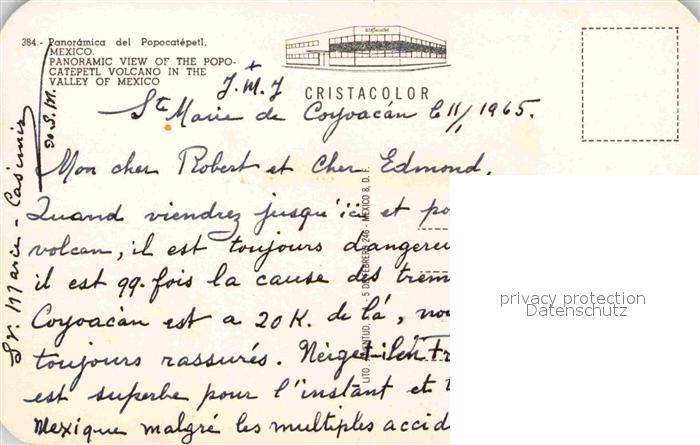 384.- Panorámica del Popocatépetl,
MEXICO.
PANORAMIC VIEW OF THE POPO-
CATEPETL VOLCANO IN THE
VALLEY OF MEXICO
CRISTACOLOR
J.M.J
Ste Marie de Coyoacán le 11/1 1965.
Mon cher Robert et Cher Edmond.
Quand viendrez jusqu'ici et po
volcan, il est toujours dangereu
il est qq. fois la cause des trem
Coyoacán est a 20 K. de là, nou
toujours rassurés. Neige-t-il en Fr
est superbe pour l'instant et t
Mexique malgré les multiples accid
Sr. Marie-Casimir
LITO. JUVENTUD, 5 DE FEBRERO 246 - MEXICO 8, D. F.
privacy protection
Datenschutz